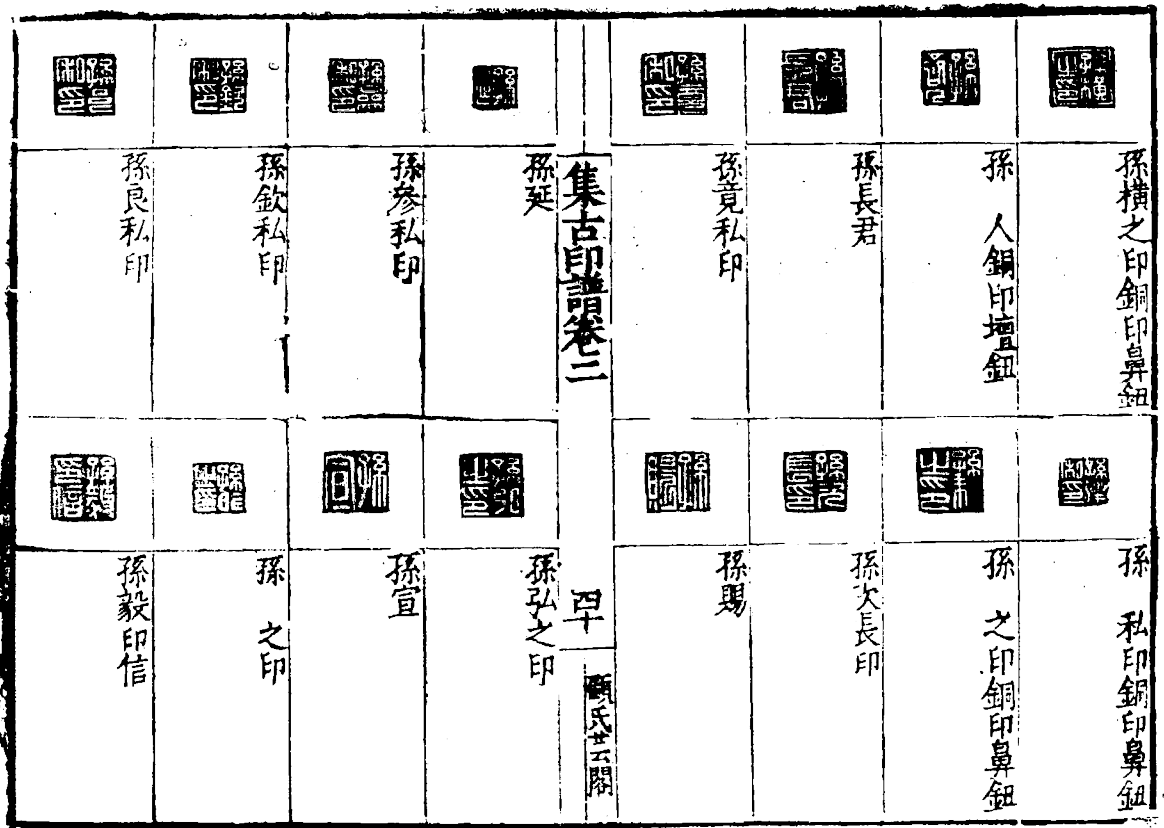 孫橫之印銅印鼻鈕
孫 人銅印壇鈕
孫長君
孫竟私印
孫 私印銅印鼻鈕
孫 之印銅印鼻鈕
孫次長印
孫賜
集古印譜卷二
四十
顧氏芸閣
孫延
孫參私印
孫欽私印
孫良私印
孫弘之印
孫宣
孫 之印
孫毅印信